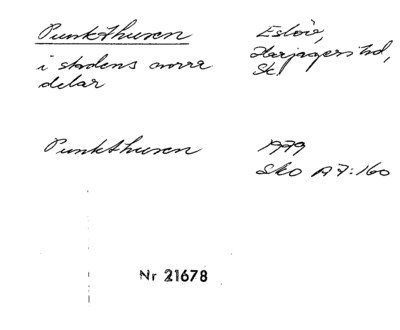 Punkthusen
i stadens norra
delar
Eslöv,
Harjagers hd,
Sk.
Punkthusen
1979
Sko A 7:160
Nr 21678